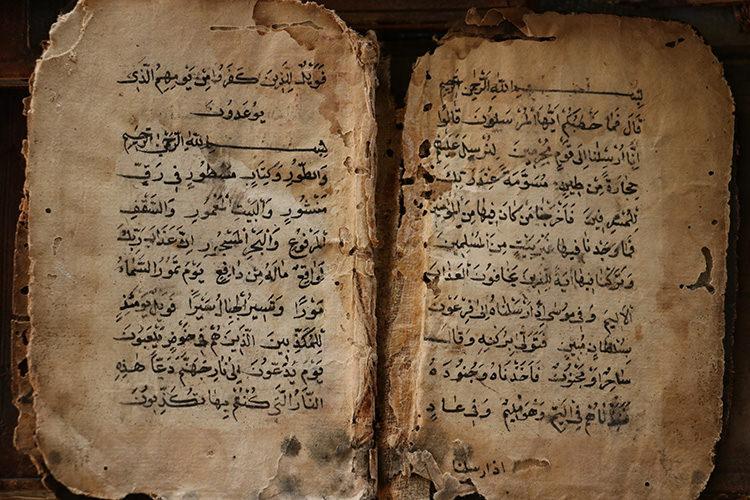 بسم الله الرحمن الرحيم
قال فما خطبكم أيها المرسلون قالوا
إنا أرسلنا إلى قوم مجرمين لنرسل عليهم
حجارة من طين مسومة عند ربك
للمسرفين فأخرجنا من كان فيها من المؤمنين
فما وجدنا فيها غير بيت من المسلمين
وتركنا فيها آية للذين يخافون العذاب
الأليم وفي موسى إذ أرسلناه إلى فرعون
بسلطان مبين فتولى بركنه وقال
ساحر أو مجنون فأخذناه وجنوده
فنبذناهم في اليم وهو مليم وفي عاد
اذ ارسلنا
فويل للذين كفروا من يومهم الذي
يوعدون
بسم الله الرحمن الرحيم
والطور وكتاب مسطور في رق
منشور والبيت المعمور والسقف
المرفوع والبحر المسجور إن عذاب ربك
لواقع ماله من دافع يوم تمور السماء
مورا وتسير الجبال سيرا فويل يومئذ
للمكذبين الذين هم في خوض يلعبون
يوم يدعون إلى نار جهنم دعا هذه
النار التي كنتم بها تكذبون